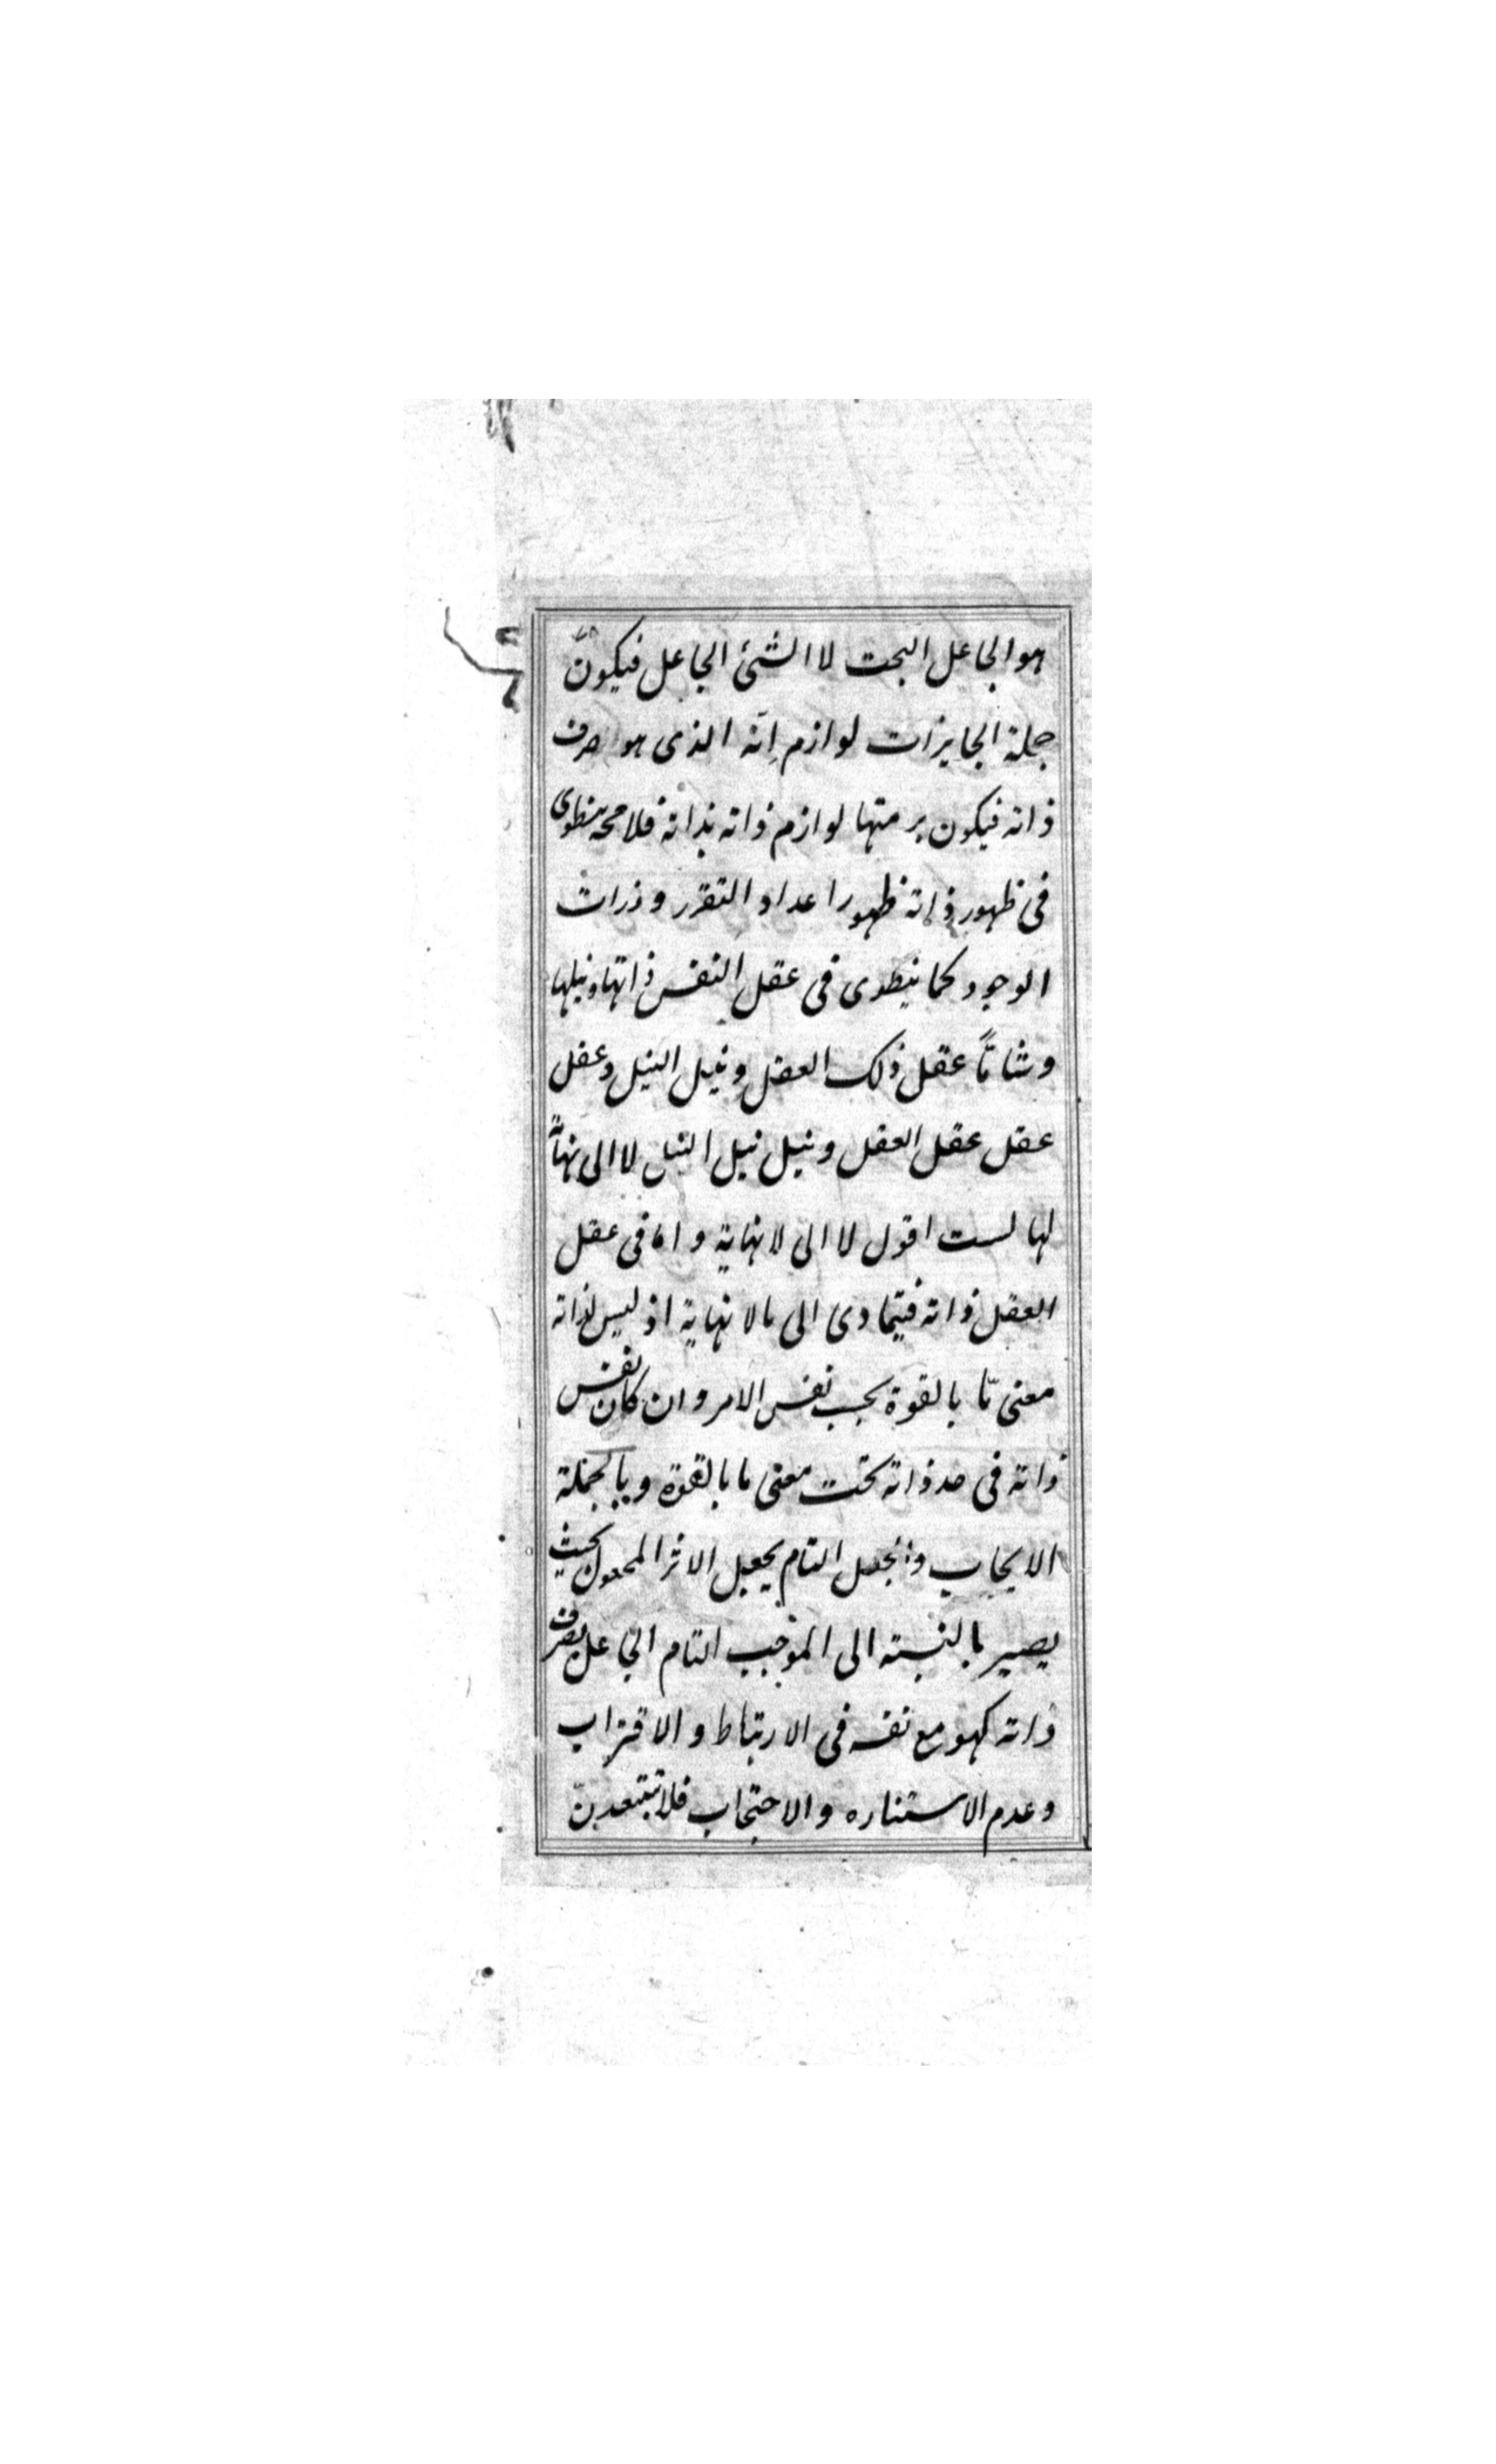 هو الجاعل البحت لا الشئ الجاعل فيكونّ
جملة الجايزات لوازم اِنّه الذى هو صرف
ذاته فيكون برمتها لوازم ذاته بذاته فلا محه ينطوى
فى ظهور ذاته ظهور اعداد التقرر وذرات
الوجود كما ينطوى فى عقل النفس ذاتها ونيلها
وشاناً عقل ذلك العقل ونيل النيل وعقل
عقل عقل العقل ونيل نيل النيل لا الى نهاية
لها لست اقول لا الى لا نهاية واما فى عقل
العقل ذاته فيتمادى الى مالا نهاية اذ ليس لذاته
معنى مّا بالقوة بحسب نفس الامر وان كان نفس
ذاته فى حد ذاته تحت معنى ما بالقوة وبالجملة
الايجاب والجعل التام يجعل الاثر المجعول بحيث
يصير بالنسبته الى الموجب التام الجاعل بصرف
ذاته كهو مع نفسه فى الارتباط والاقتراب
وعدم الاستناره والاحتجاب فلا تستبعدنّ